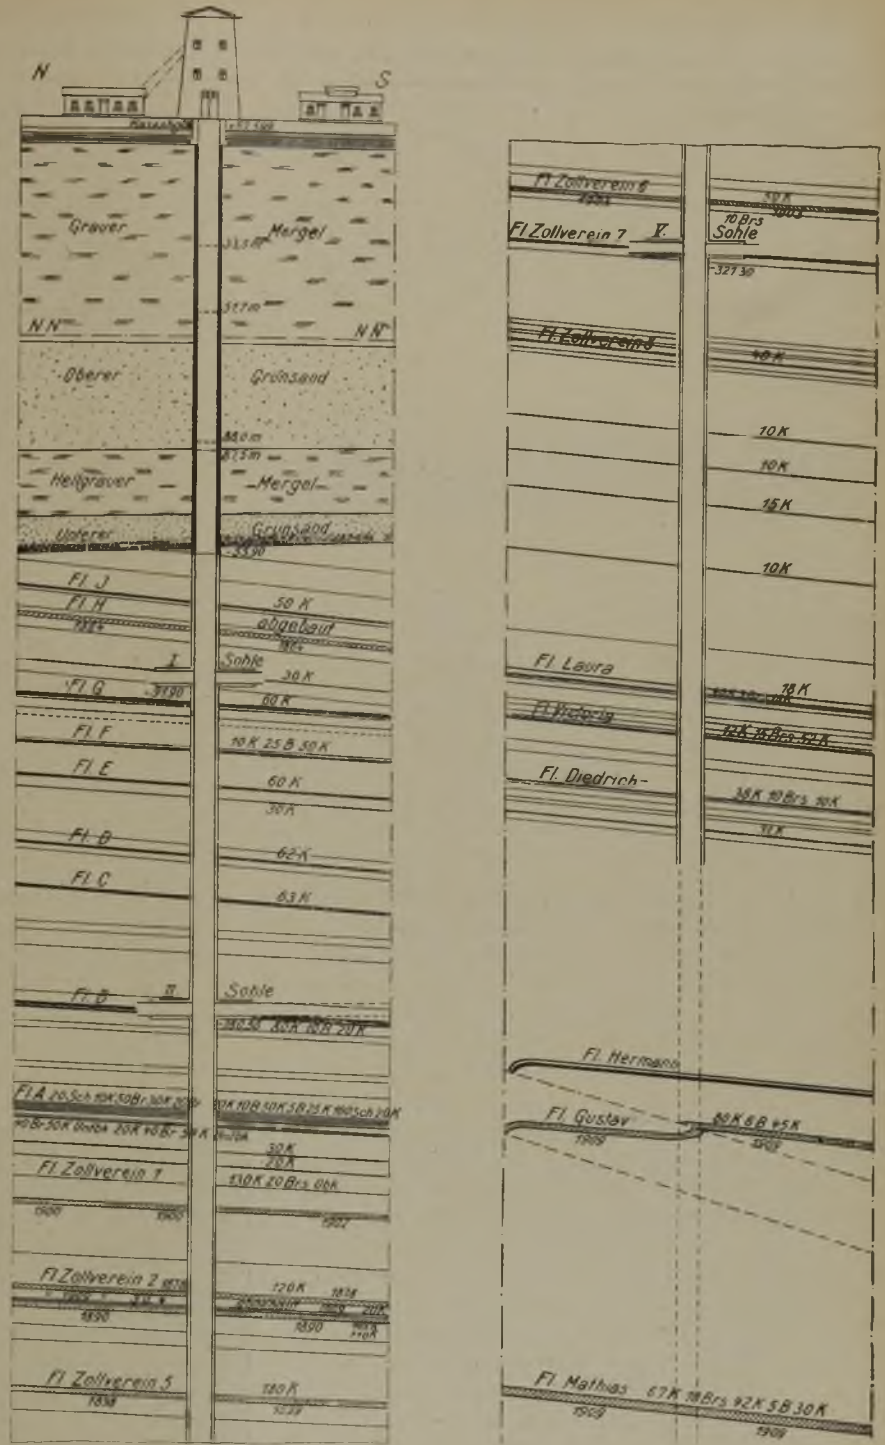 N
S
Grauer Mergel
33,5 m
51,7 m
NN NN
Oberer Grünsand
88,0 m
Hellgrauer Mergel
Unterer Grünsand
Fl. J
50 K
Fl. H
abgebaut
1884
1884
I. Sohle
30 K
Fl. G
60 K
Fl. F
10 K 25 B 30 K
Fl. E
60 K
30 K
Fl. D
62 K
Fl. C
63 K
Fl. B
Sohle
80 K 10 B 20 K
Fl. A 20 Sch 10 K 50 Br 30 K
10 B 50 K 5 B 25 K 160 Sch 20 K
30 K
20 K
Fl. Zollverein 1
130 K 20 Brs ObK
1900
1900
1902
Fl. Zollverein 2 1878
120 K 1878
20 K
1890
1890
Fl. Zollverein 5
180 K
1898
Fl. Zollverein 6
50 K
10 Brs
Fl. Zollverein 7
V. Sohle
-327.30
Fl. Zollverein 8
40 K
10 K
10 K
15 K
10 K
Fl. Laura
18 K
Fl. Victoria
12 K 15 Brs 52 K
Fl. Diedrich
38 K 10 Brs 10 K
Fl. Hermann
Fl. Gustav
80 K 6 B 45 K
1909
1909
Fl. Mathias 67 K 18 Brs 92 K 5 B 30 K
1909
1909